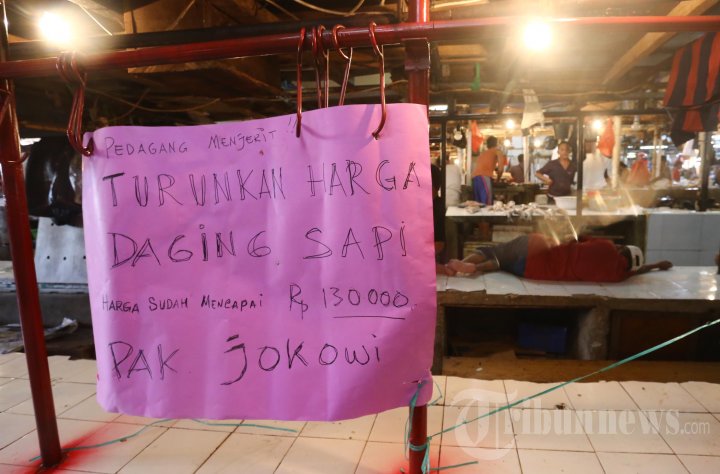 PEDAGANG MENJERIT !!
TURUNKAN HARGA
DAGING SAPI
HARGA SUDAH MENCAPAI Rp 130 000
PAK JOKOWI
Tribunnews.com